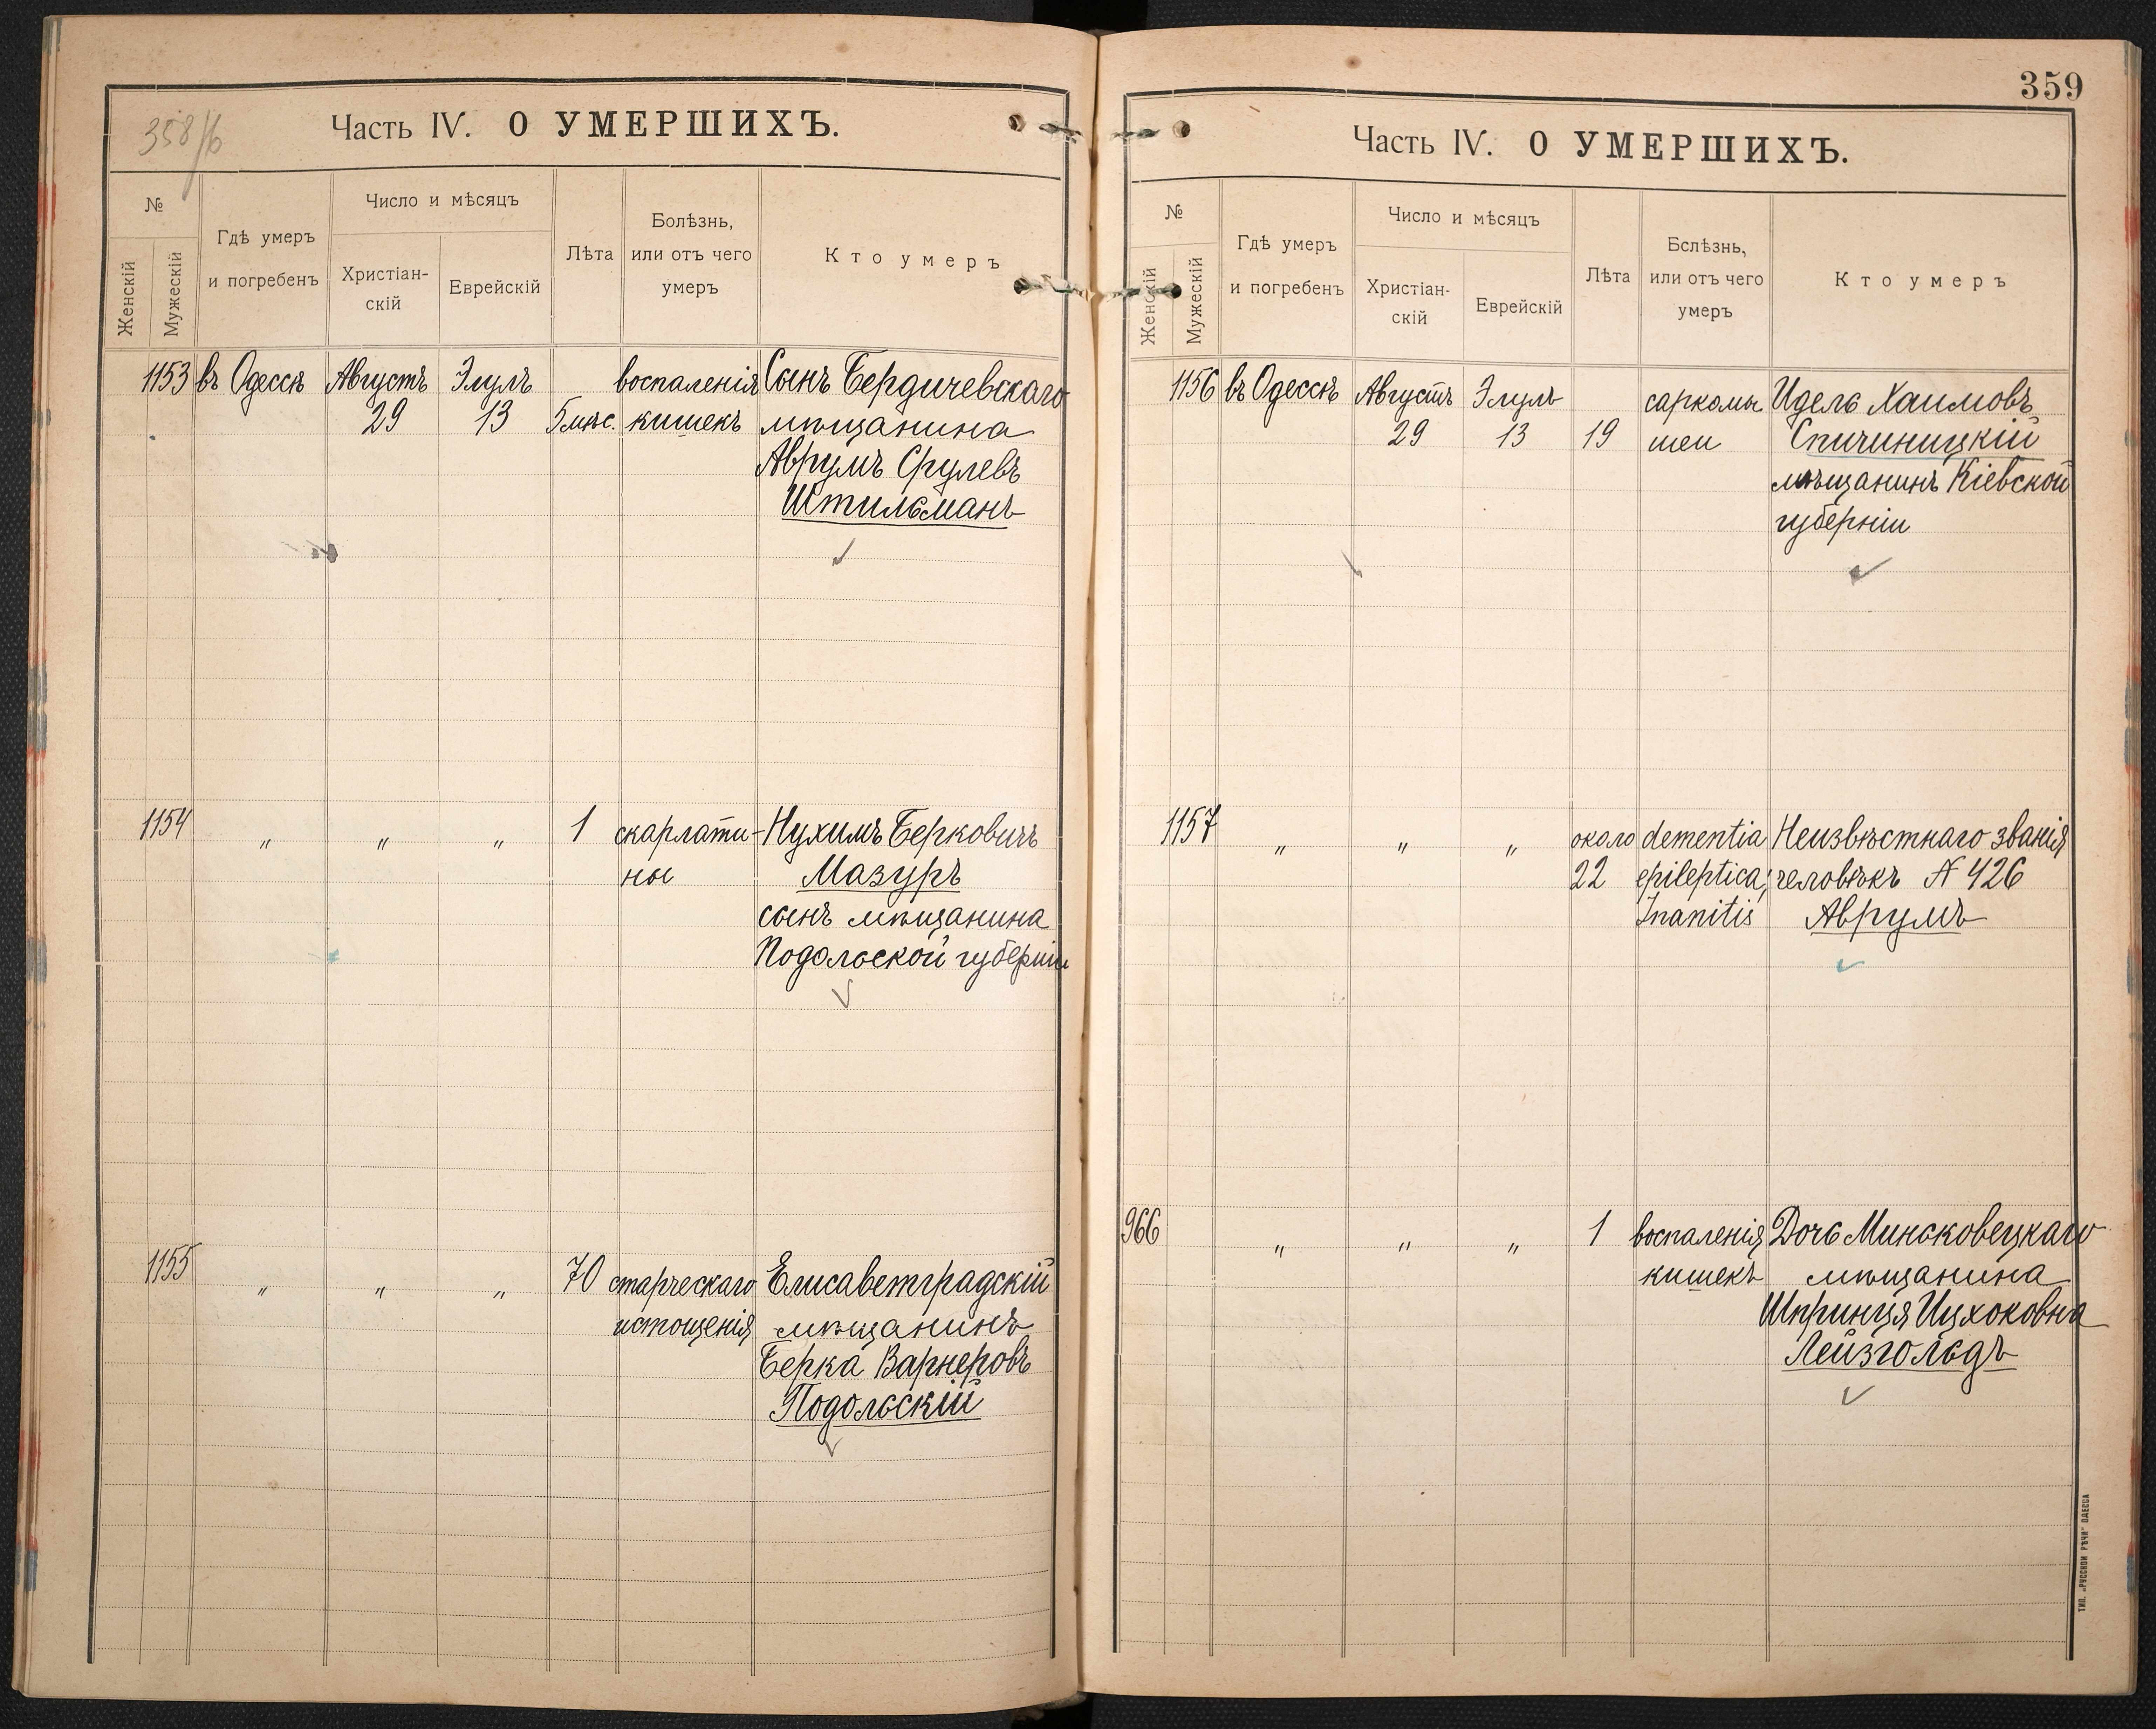 358/б
Часть IV. О УМЕРШИХЪ.
№
Женскій
Мужескій
Гдѣ умеръ
и погребенъ
Число и мѣсяцъ
Христіан-
скій
Еврейскій
Лѣта
Болѣзнь,
или отъ чего
умеръ
Кто умеръ
1153 въ Одессѣ Августъ Элулъ воспаленія Сынъ Бердичевскаго
29 13 5 мѣс. кишекъ мѣщанина
Аврумъ Срулевъ
Штильманъ
1154 " " " 1 скарлати- Нухимъ Берковичъ
ны Мазуръ
сынъ мѣщанина
Подольской губерніи
1155 " " " 70 старческаго Елисаветградскій
истощенія мѣщанинъ
Берка Варнеровъ
Подольскій
359
Часть IV. О УМЕРШИХЪ.
№
Женскій
Мужескій
Гдѣ умеръ
и погребенъ
Число и мѣсяцъ
Христіан-
скій
Еврейскій
Лѣта
Бслѣзнь,
или отъ чего
умеръ
Кто умеръ
1156 въ Одессѣ Августъ Элулъ саркомы Идель Хаимовъ
29 13 19 шеи Спичиницкій
мѣщанинъ Кіевской
губерніи
1157 " " " около dementia Неизвѣстнаго званія
22 epileptica, человѣкъ № 426
Inanitis Аврумъ
966 " " " 1 воспаленія Дочь Миньковецкаго
кишекъ мѣщанина
Шпринця Ицхоковна
Лейзгольдъ
ТИП. „РУССКОЙ РѢЧИ" ОДЕССА